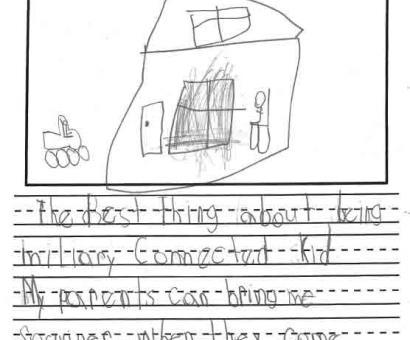 The Best Thing about being
military Connected Kid
My parents can bring me
when they come